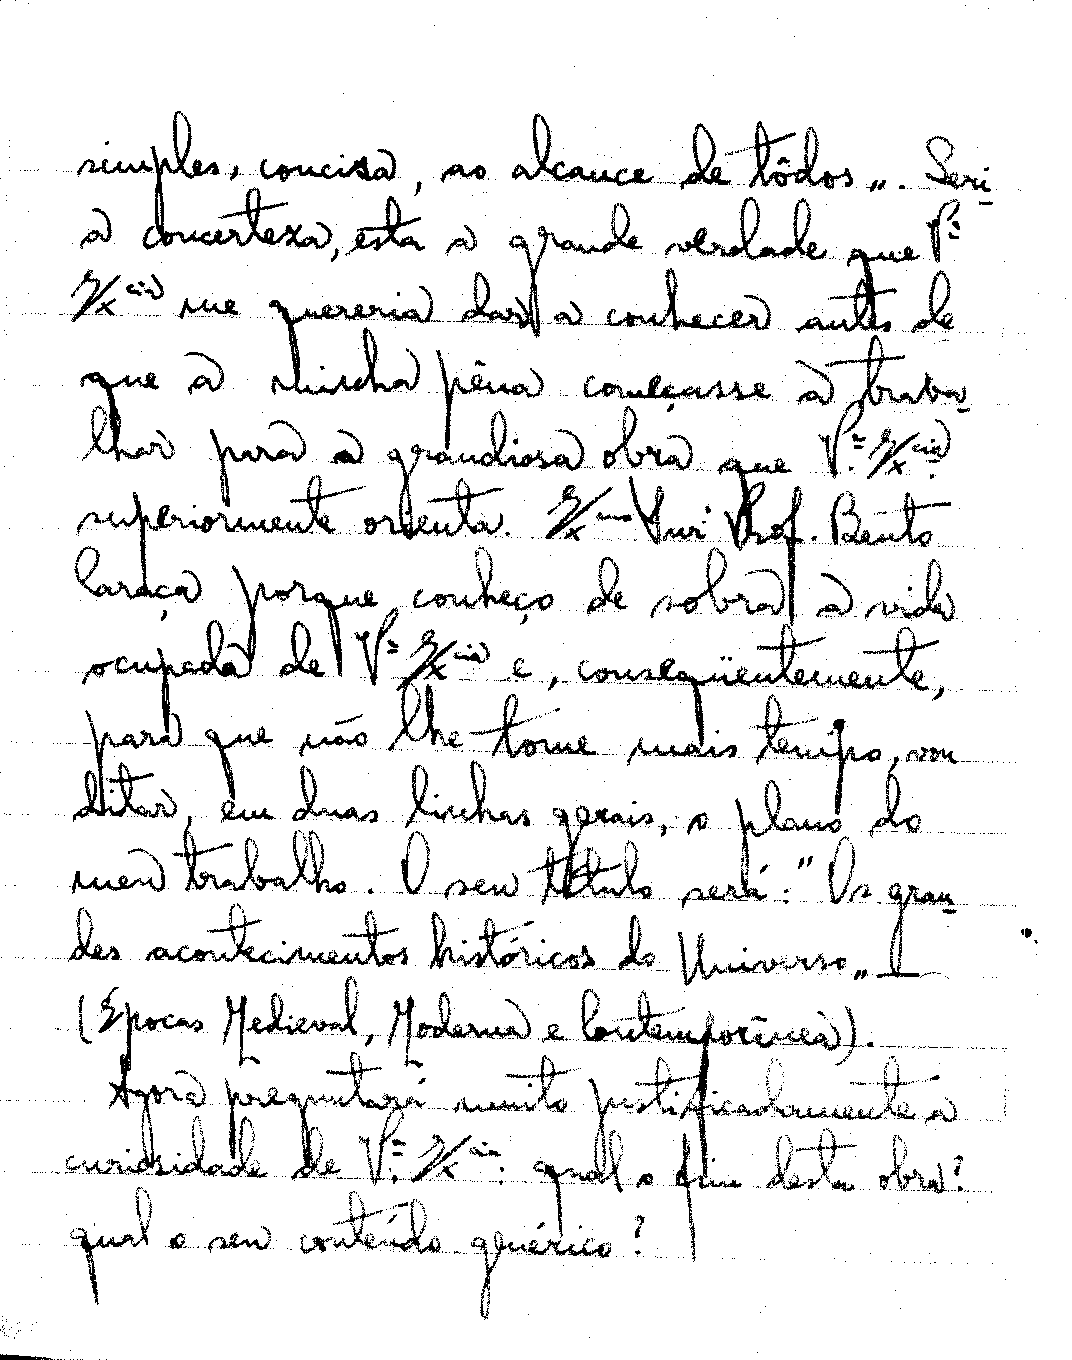 simples, concisa, ao alcance de tôdos„. Seri-
a concerteza, esta a grande verdade que V.ª
Ex.cia me quereria dar a conhecer antes de
que a minha pêna começasse a traba-
lhar para a grandiosa obra que V.ª Ex.cia
superiormente orienta. Ex.mo Snr. Prof. Bento
Caraça porque conheço de sobra a vida
ocupada de V.ª Ex.cia e, conseqüentemente,
para que não lhe tome mais tempo, vou
ditar, em duas linhas gerais, o plano do
meu trabalho. O seu título será: "Os gran-
des acontecimentos históricos do Universo„ —
(Epocas Medieval, Moderna e Contemporânea).
Agora preguntará muito justificadamente a
curiosidade de V.ª Ex.cia: qual o fim desta obra?
qual o seu conteúdo genérico?